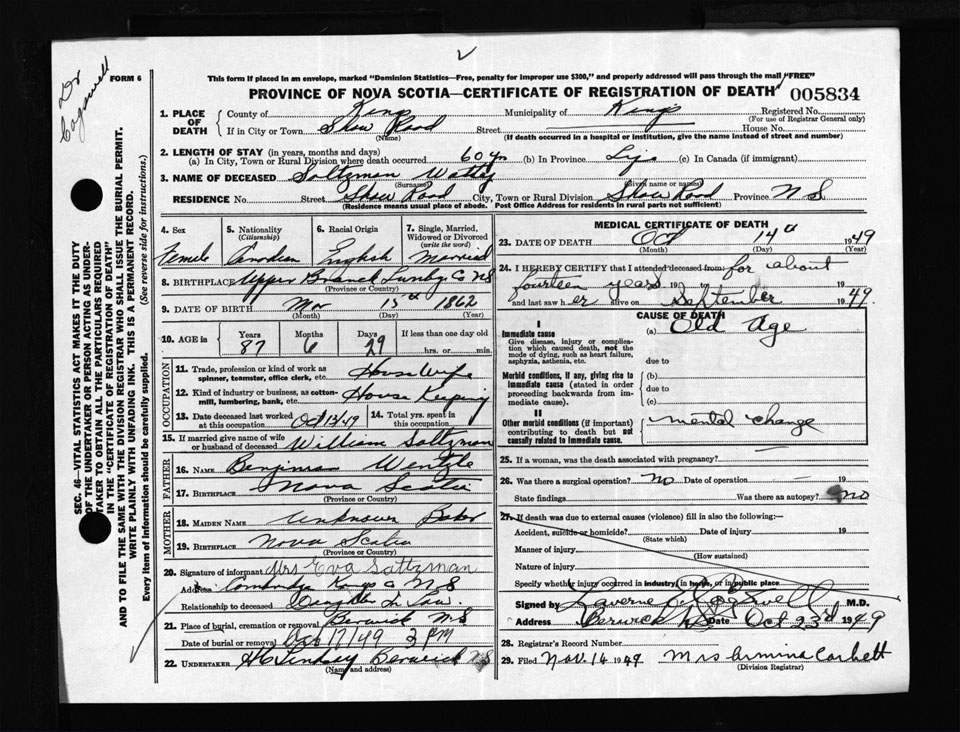 Dr
Cogswell
FORM 6
SEC. 46—VITAL STATISTICS ACT MAKES IT THE DUTY
OF THE UNDERTAKER OR PERSON ACTING AS UNDER-
TAKER TO OBTAIN ALL THE PARTICULARS REQUIRED
IN THE "CERTIFICATE OF REGISTRATION OF DEATH"
AND TO FILE THE SAME WITH THE DIVISION REGISTRAR WHO SHALL ISSUE THE BURIAL PERMIT.
WRITE PLAINLY WITH UNFADING INK. THIS IS A PERMANENT RECORD.
Every item of Information should be carefully supplied. (See reverse side for instructions.)
This form if placed in an envelope, marked "Dominion Statistics—Free, penalty for improper use $300," and properly addressed will pass through the mail "FREE"
PROVINCE OF NOVA SCOTIA—CERTIFICATE OF REGISTRATION OF DEATH 005834
1. PLACE OF DEATH County of Kings Municipality of Kings Registered No.
(For use of Registrar General only)
If in City or Town Shaw Road Street House No.
(Name) (If death occurred in a hospital or institution, give the name instead of street and number)
2. LENGTH OF STAY (in years, months and days)
(a) In City, Town or Rural Division where death occurred 60 yrs (b) In Province Life (c) In Canada (if immigrant)
3. NAME OF DECEASED Saltzman
(Surname) (Given name or names)
RESIDENCE No. Street Shaw Road City, Town or Rural Division Shaw Road Province N S
(Residence means usual place of abode. Post Office Address for residents in rural parts not sufficient)
4. Sex 5. Nationality (Citizenship) 6. Racial Origin 7. Single, Married, Widowed or Divorced (write the word)
Female Canadian English Married
8. BIRTHPLACE Upper Branch Lunbg Co NS
(Province or Country)
9. DATE OF BIRTH Mar 15th 1862
(Month) (Day) (Year)
10. AGE in Years Months Days If less than one day old
87 6 29 hrs. or min.
OCCUPATION
11. Trade, profession or kind of work as spinner, teamster, office clerk, etc. House Wife
12. Kind of industry or business, as cotton-mill, lumbering, bank, etc. House Keeping
13. Date deceased last worked at this occupation Oct 13/49 14. Total yrs. spent in this occupation
15. If married give name of wife or husband of deceased William Saltzman
FATHER
16. NAME Benjiman Wentzle
17. BIRTHPLACE Nova Scotia
(Province or Country)
MOTHER
18. MAIDEN NAME Unknown Baker
19. BIRTHPLACE Nova Scotia
(Province or Country)
20. Signature of informant Mrs Eva Saltzman
Address Kings Co N S
Relationship to deceased Daughter In Law
21. Place of burial, cremation or removal Berwick N S
Date of burial or removal Oct 17/49 3 PM
22. UNDERTAKER Lindsay Berwick NS
(Name and address)
MEDICAL CERTIFICATE OF DEATH
23. DATE OF DEATH Oct 14th 1949
(Month) (Day) (Year)
24. I HEREBY CERTIFY that I attended deceased from: for about
fourteen years 19 to 19
and last saw her alive on September 1949.
CAUSE OF DEATH
I
Immediate cause (a) Old Age
Give disease, injury or complication which caused death, not the mode of dying, such as heart failure, asphyxia, asthenia, etc.
due to
Morbid conditions, if any, giving rise to immediate cause (stated in order proceeding backwards from immediate cause).
(b)
due to
(c)
II
Other morbid conditions (if important) contributing to death but not causally related to immediate cause.
mental change
25. If a woman, was the death associated with pregnancy?
26. Was there a surgical operation? No Date of operation 19
State findings Was there an autopsy? no
27. If death was due to external causes (violence) fill in also the following:—
Accident, suicide or homicide? Date of injury 19
(State which)
Manner of injury
(How sustained)
Nature of injury
Specify whether injury occurred in industry, in home, or in public place
Signed by Laverne Cogswell M.D.
Address Berwick NS Date Oct 23rd 1949
28. Registrar's Record Number
29. Filed Nov. 14 1949 Mrs Armina Corbett
(Division Registrar)